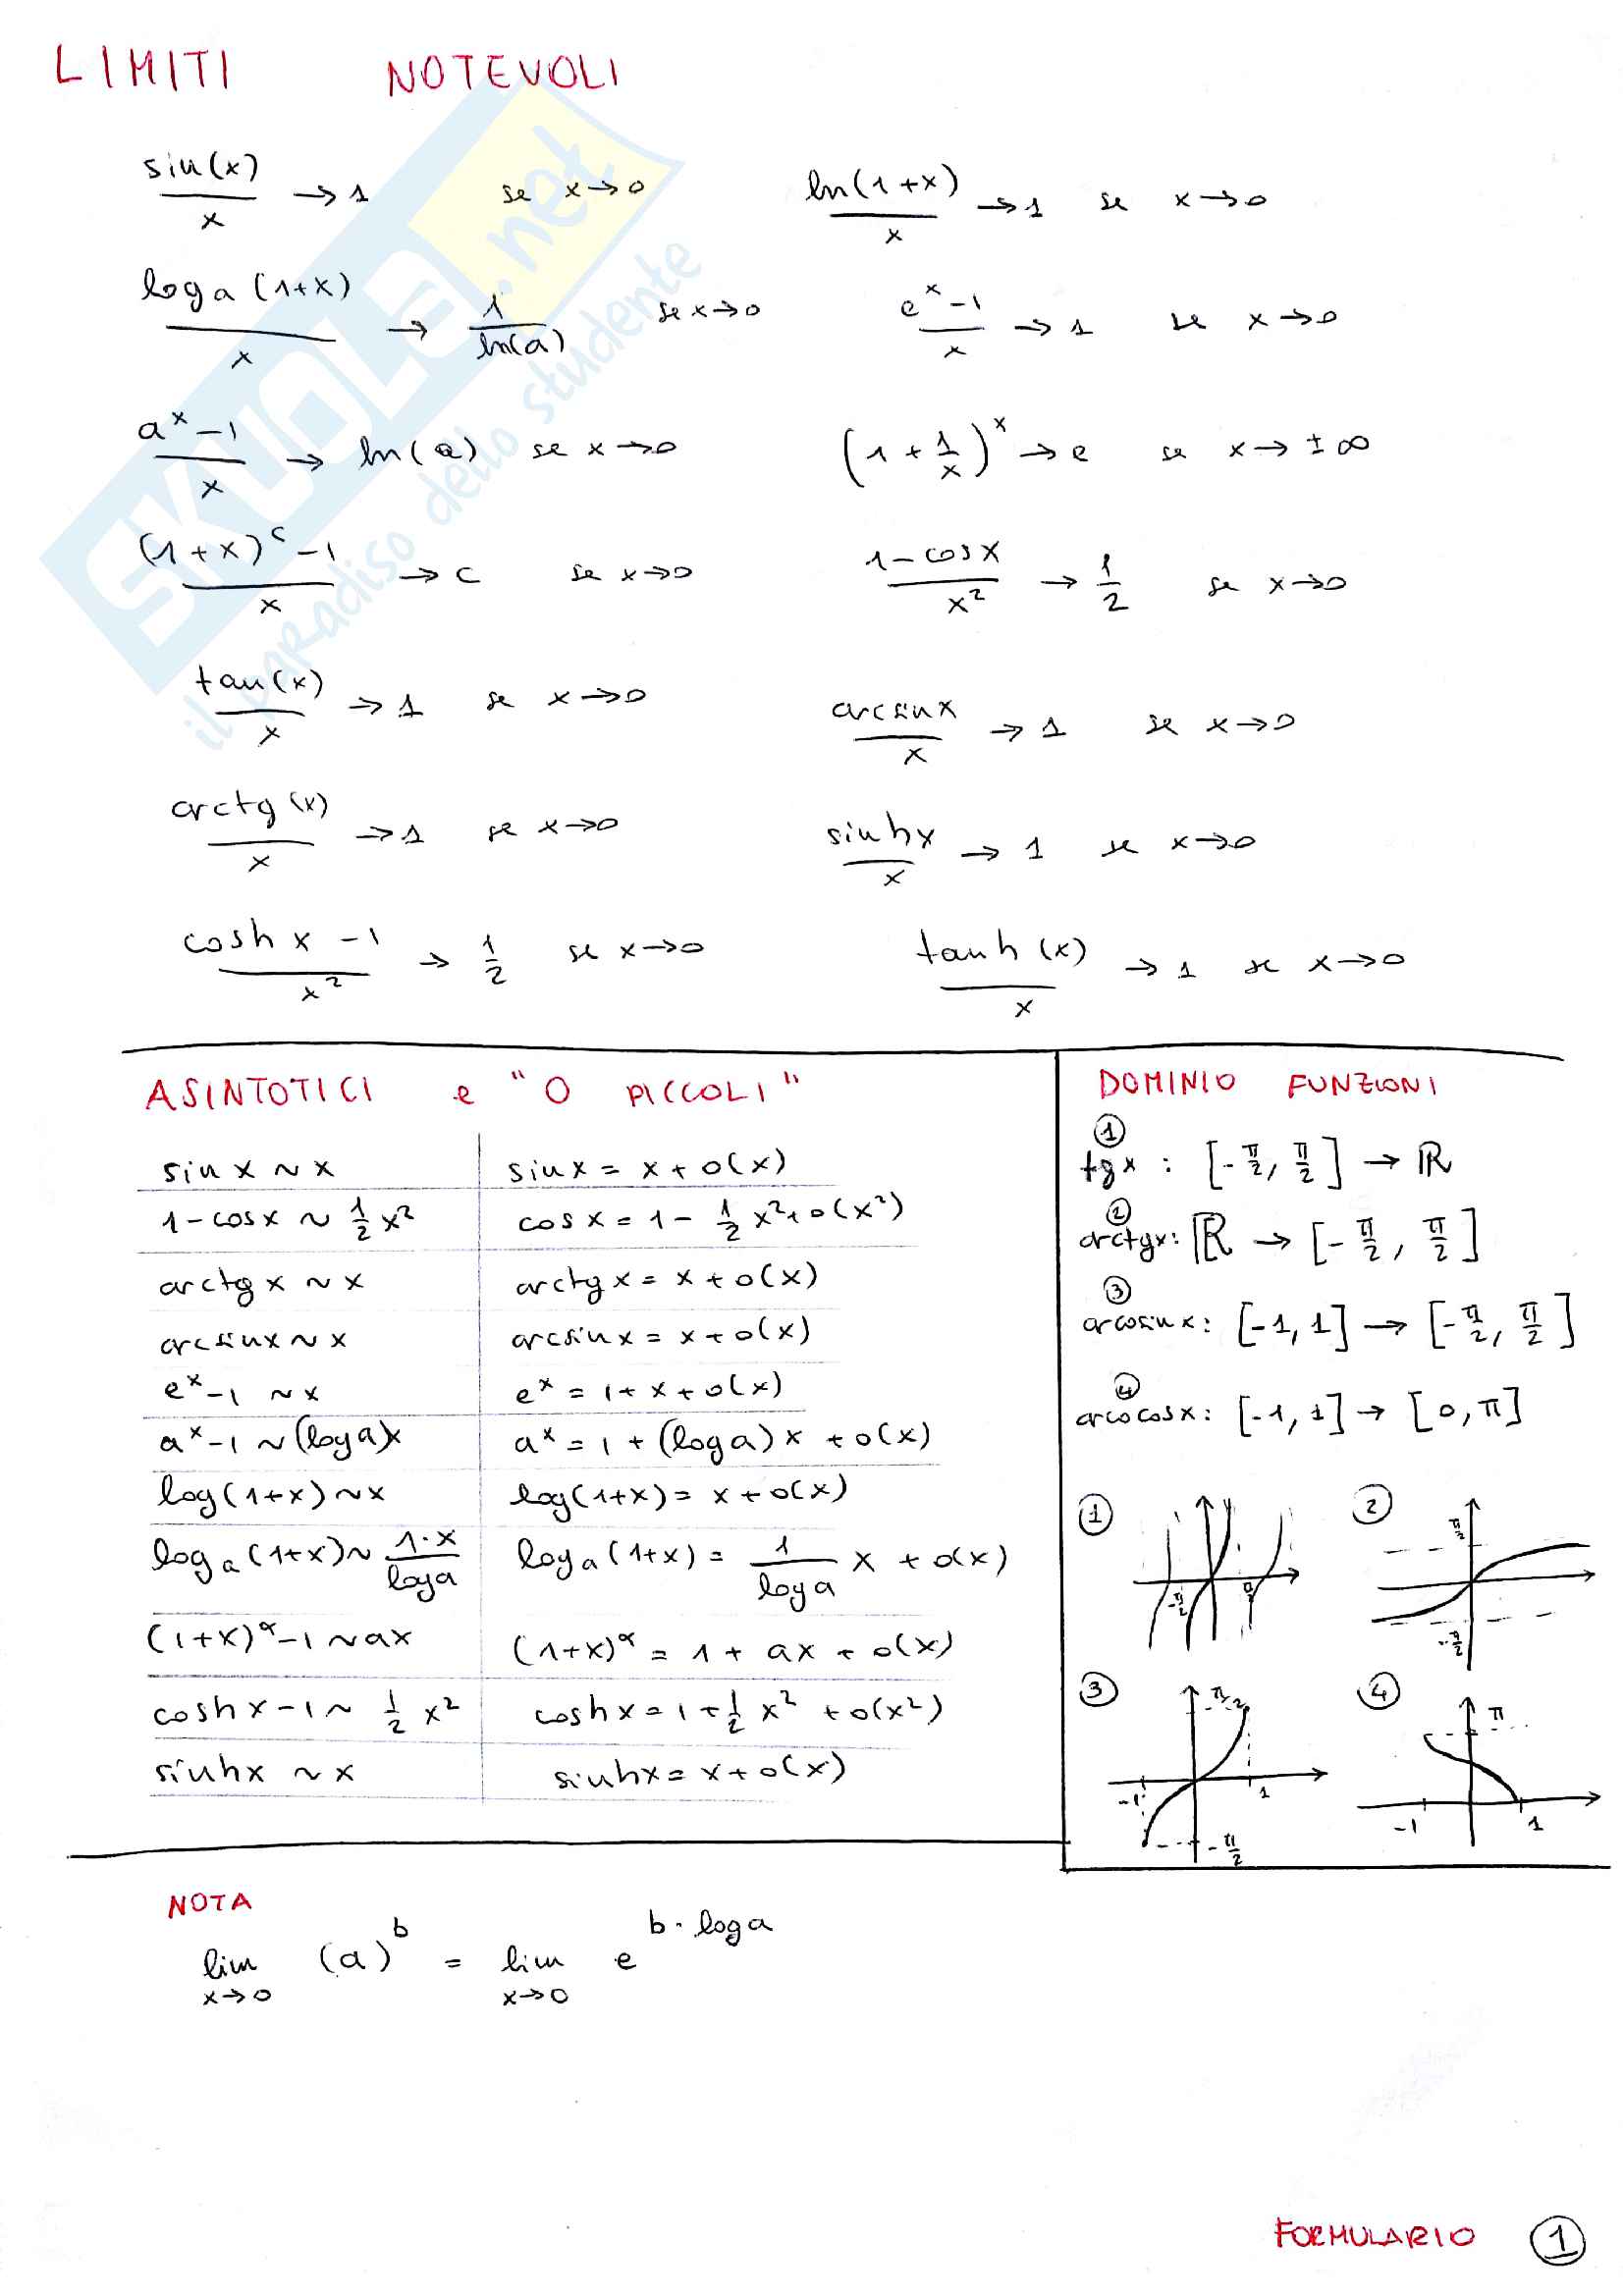 LIMITI NOTEVOLI
sin(x)/x → 1 se x→0
ln(1+x)/x → 1 se x→0
log a (1+x)/x → 1/ln(a) se x→0
e^x-1/x → 1 se x→0
a^x-1/x → ln(a) se x→0
(1+1/x)^x → e se x→±∞
(1+x)^c-1/x → c se x→0
1-cosx/x² → 1/2 se x→0
tan(x)/x → 1 se x→0
arcsinx/x → 1 se x→0
arctg(x)/x → 1 se x→0
sinhx/x → 1 se x→0
cosh x -1/x² → 1/2 se x→0
tanh(x)/x → 1 se x→0
SKUOLA.net
il paradiso dello studente
ASINTOTICI e "O PICCOLI"
sin x ~ x sinx = x + o(x)
1-cosx ~ 1/2 x² cosx = 1 - 1/2 x² + o(x²)
arctg x ~ x arctg x = x + o(x)
arcsinx ~ x arcsin x = x + o(x)
e^x-1 ~ x e^x = 1 + x + o(x)
a^x-1 ~ (log a)x a^x = 1 + (log a)x + o(x)
log(1+x) ~ x log(1+x) = x + o(x)
log a (1+x) ~ 1·x/log a log a (1+x) = 1/log a x + o(x)
(1+x)^α-1 ~ ax (1+x)^α = 1 + ax + o(x)
coshx-1 ~ 1/2 x² coshx = 1 + 1/2 x² + o(x²)
sinhx ~ x sinhx = x + o(x)
DOMINIO FUNZIONI
①
tgx : [-π/2, π/2] → ℝ
②
arctgx: ℝ → [-π/2, π/2]
③
arcosinx: [-1,1] → [-π/2, π/2]
④
arcocosx: [-1,1] → [0,π]
①
-π/2 π/2
②
π/2
-π/2
③
π/2
-1 1
-π/2
④
π
-1 1
NOTA
lim x→0 (a)^b = lim x→0 e^b·log a
FORMULARIO ①